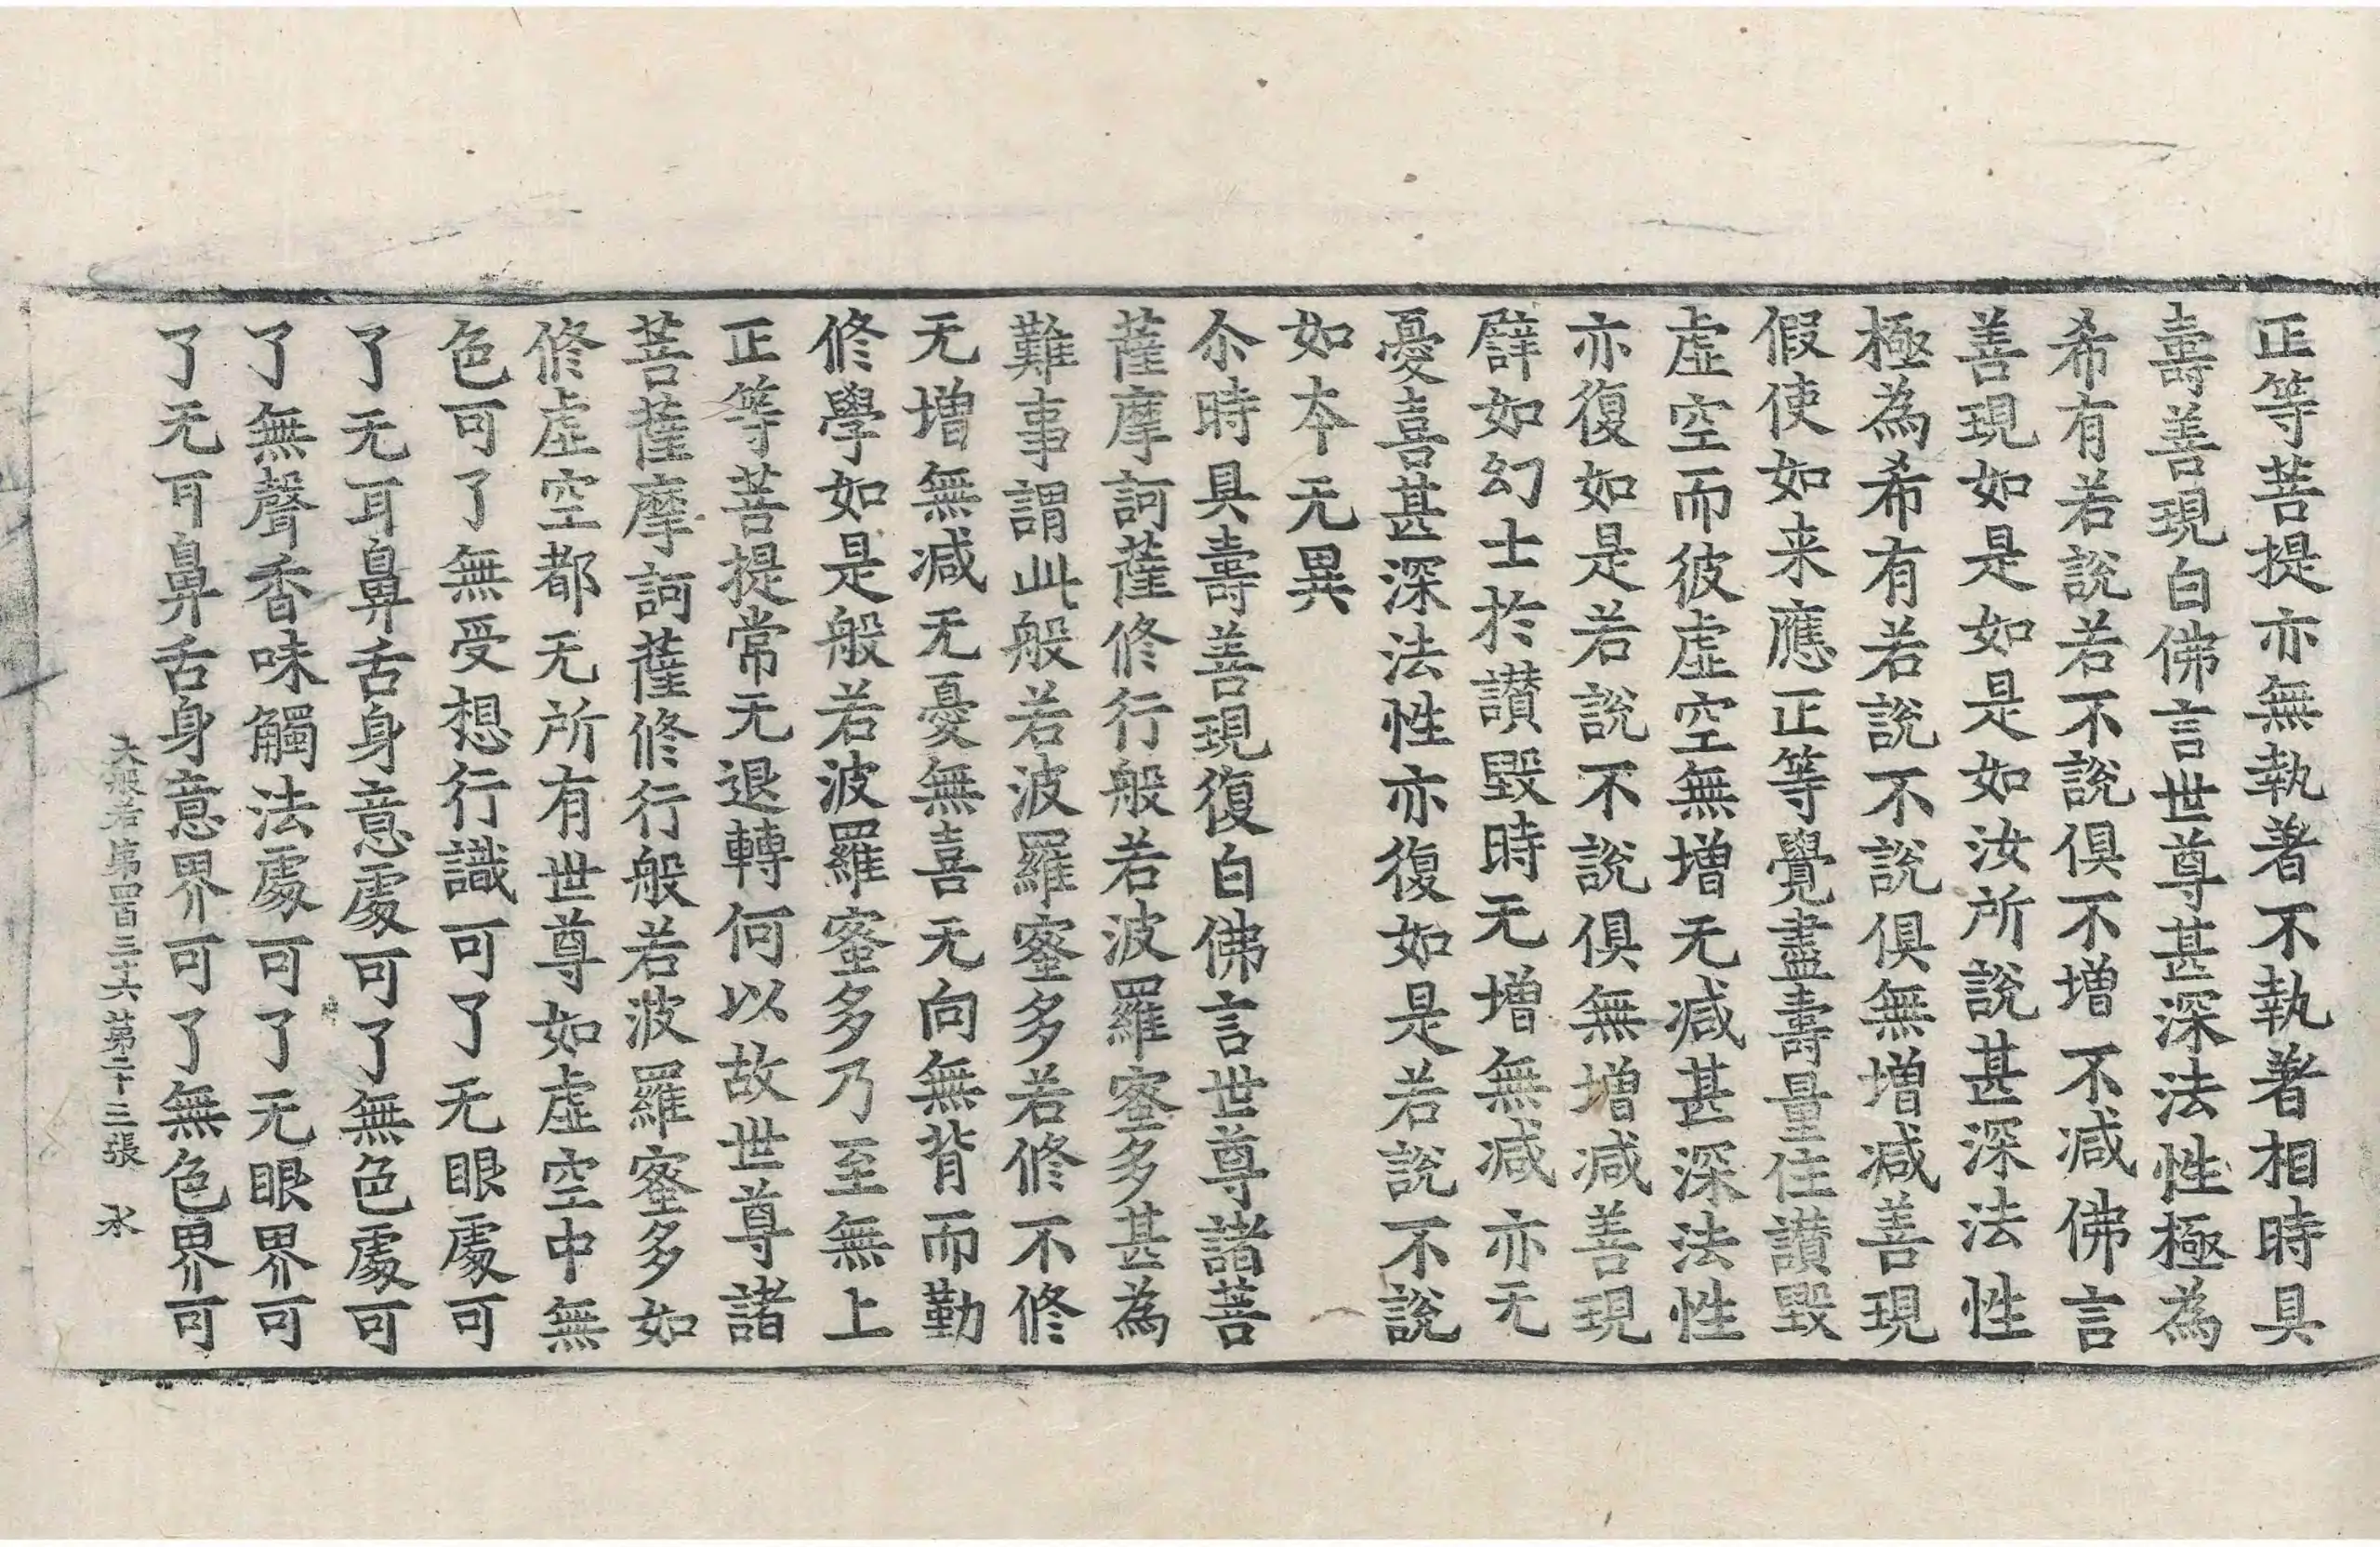 正等菩提亦無執著不執著相時具
壽善現白佛言世尊甚深法性極為
希有若說若不說俱不增不減佛言
善現如是如是如汝所說甚深法性
極為希有若說不說俱無增減善現
假使如来應正等覺盡壽量住讃毀
虛空而彼虛空無增无減甚深法性
亦復如是若說不說俱無增減善現
譬如幻士於讃毀時无增無減亦无
憂喜甚深法性亦復如是若說不說
如本无異
尒時具壽善現復白佛言世尊諸菩
薩摩訶薩修行般若波羅蜜多甚為
難事謂此般若波羅蜜多若修不修
无增無減无憂無喜无向無背而勤
修學如是般若波羅蜜多乃至無上
正等菩提常无退轉何以故世尊諸
菩薩摩訶薩修行般若波羅蜜多如
修虛空都无所有世尊如虛空中無
色可了無受想行識可了无眼處可
了无耳鼻舌身意處可了無色處可
了無聲香味觸法處可了无眼界可
了无耳鼻舌身意界可了無色界可
大般若第四百三十六 第二十三張 水